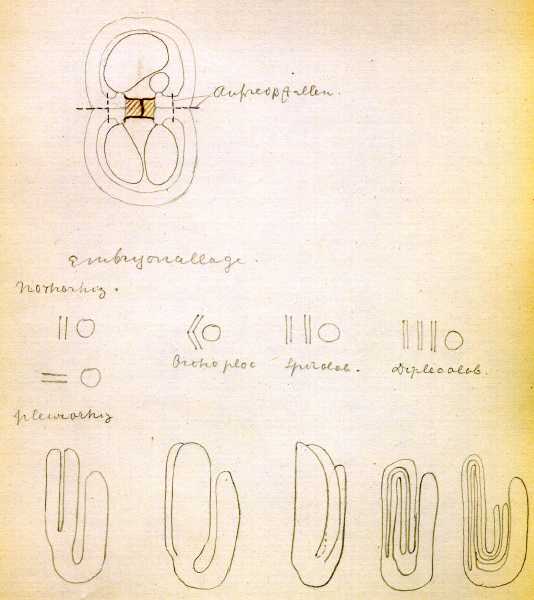 Aufreißstellen.
Embryonallage.
Notorhiz.
Orthoploc Spirolob. Diplecolob.
pleurorhiz